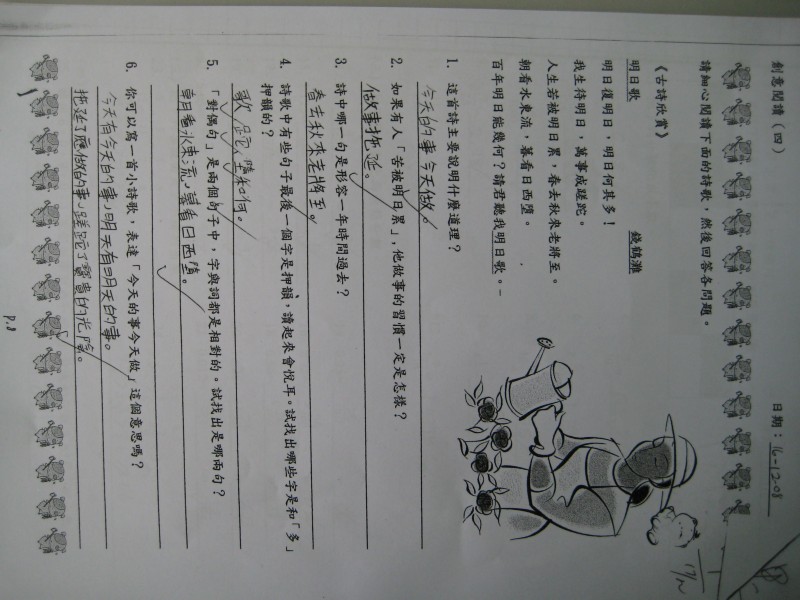 創意閱讀（四）
日期：16-12-08
請細心閱讀下面的詩歌，然後回答各問題。
《古詩欣賞》
明日歌 錢鶴灘
明日復明日，明日何其多！
我生待明日，萬事成蹉跎。
人生若被明日累，春去秋來老將至。
朝看水東流，暮看日西墮。
百年明日能幾何？請君聽我明日歌。
1. 這首詩主要說明什麼道理？
今天的事今天做。
2. 如果有人「若被明日累」，他做事的習慣一定是怎樣？
做事拖延。
3. 詩中哪一句是形容一年時間過去？
春去秋來老將至。
4. 詩歌中有些句子最後一個字是押韻，讀起來會悅耳。試找出哪些字是和「多」
押韻的？
歌，跎，墮和何。
5. 「對偶句」是兩個句子中，字與詞都是相對的。試找出是哪兩句？
朝看水東流，暮看日西墮。
6. 你可以寫一首小詩歌，表達「今天的事今天做」這個意思嗎？
今天有今天的事，明天有明天的事。
拖延了應做的事，蹉跎了寶貴的光陰。
P.8